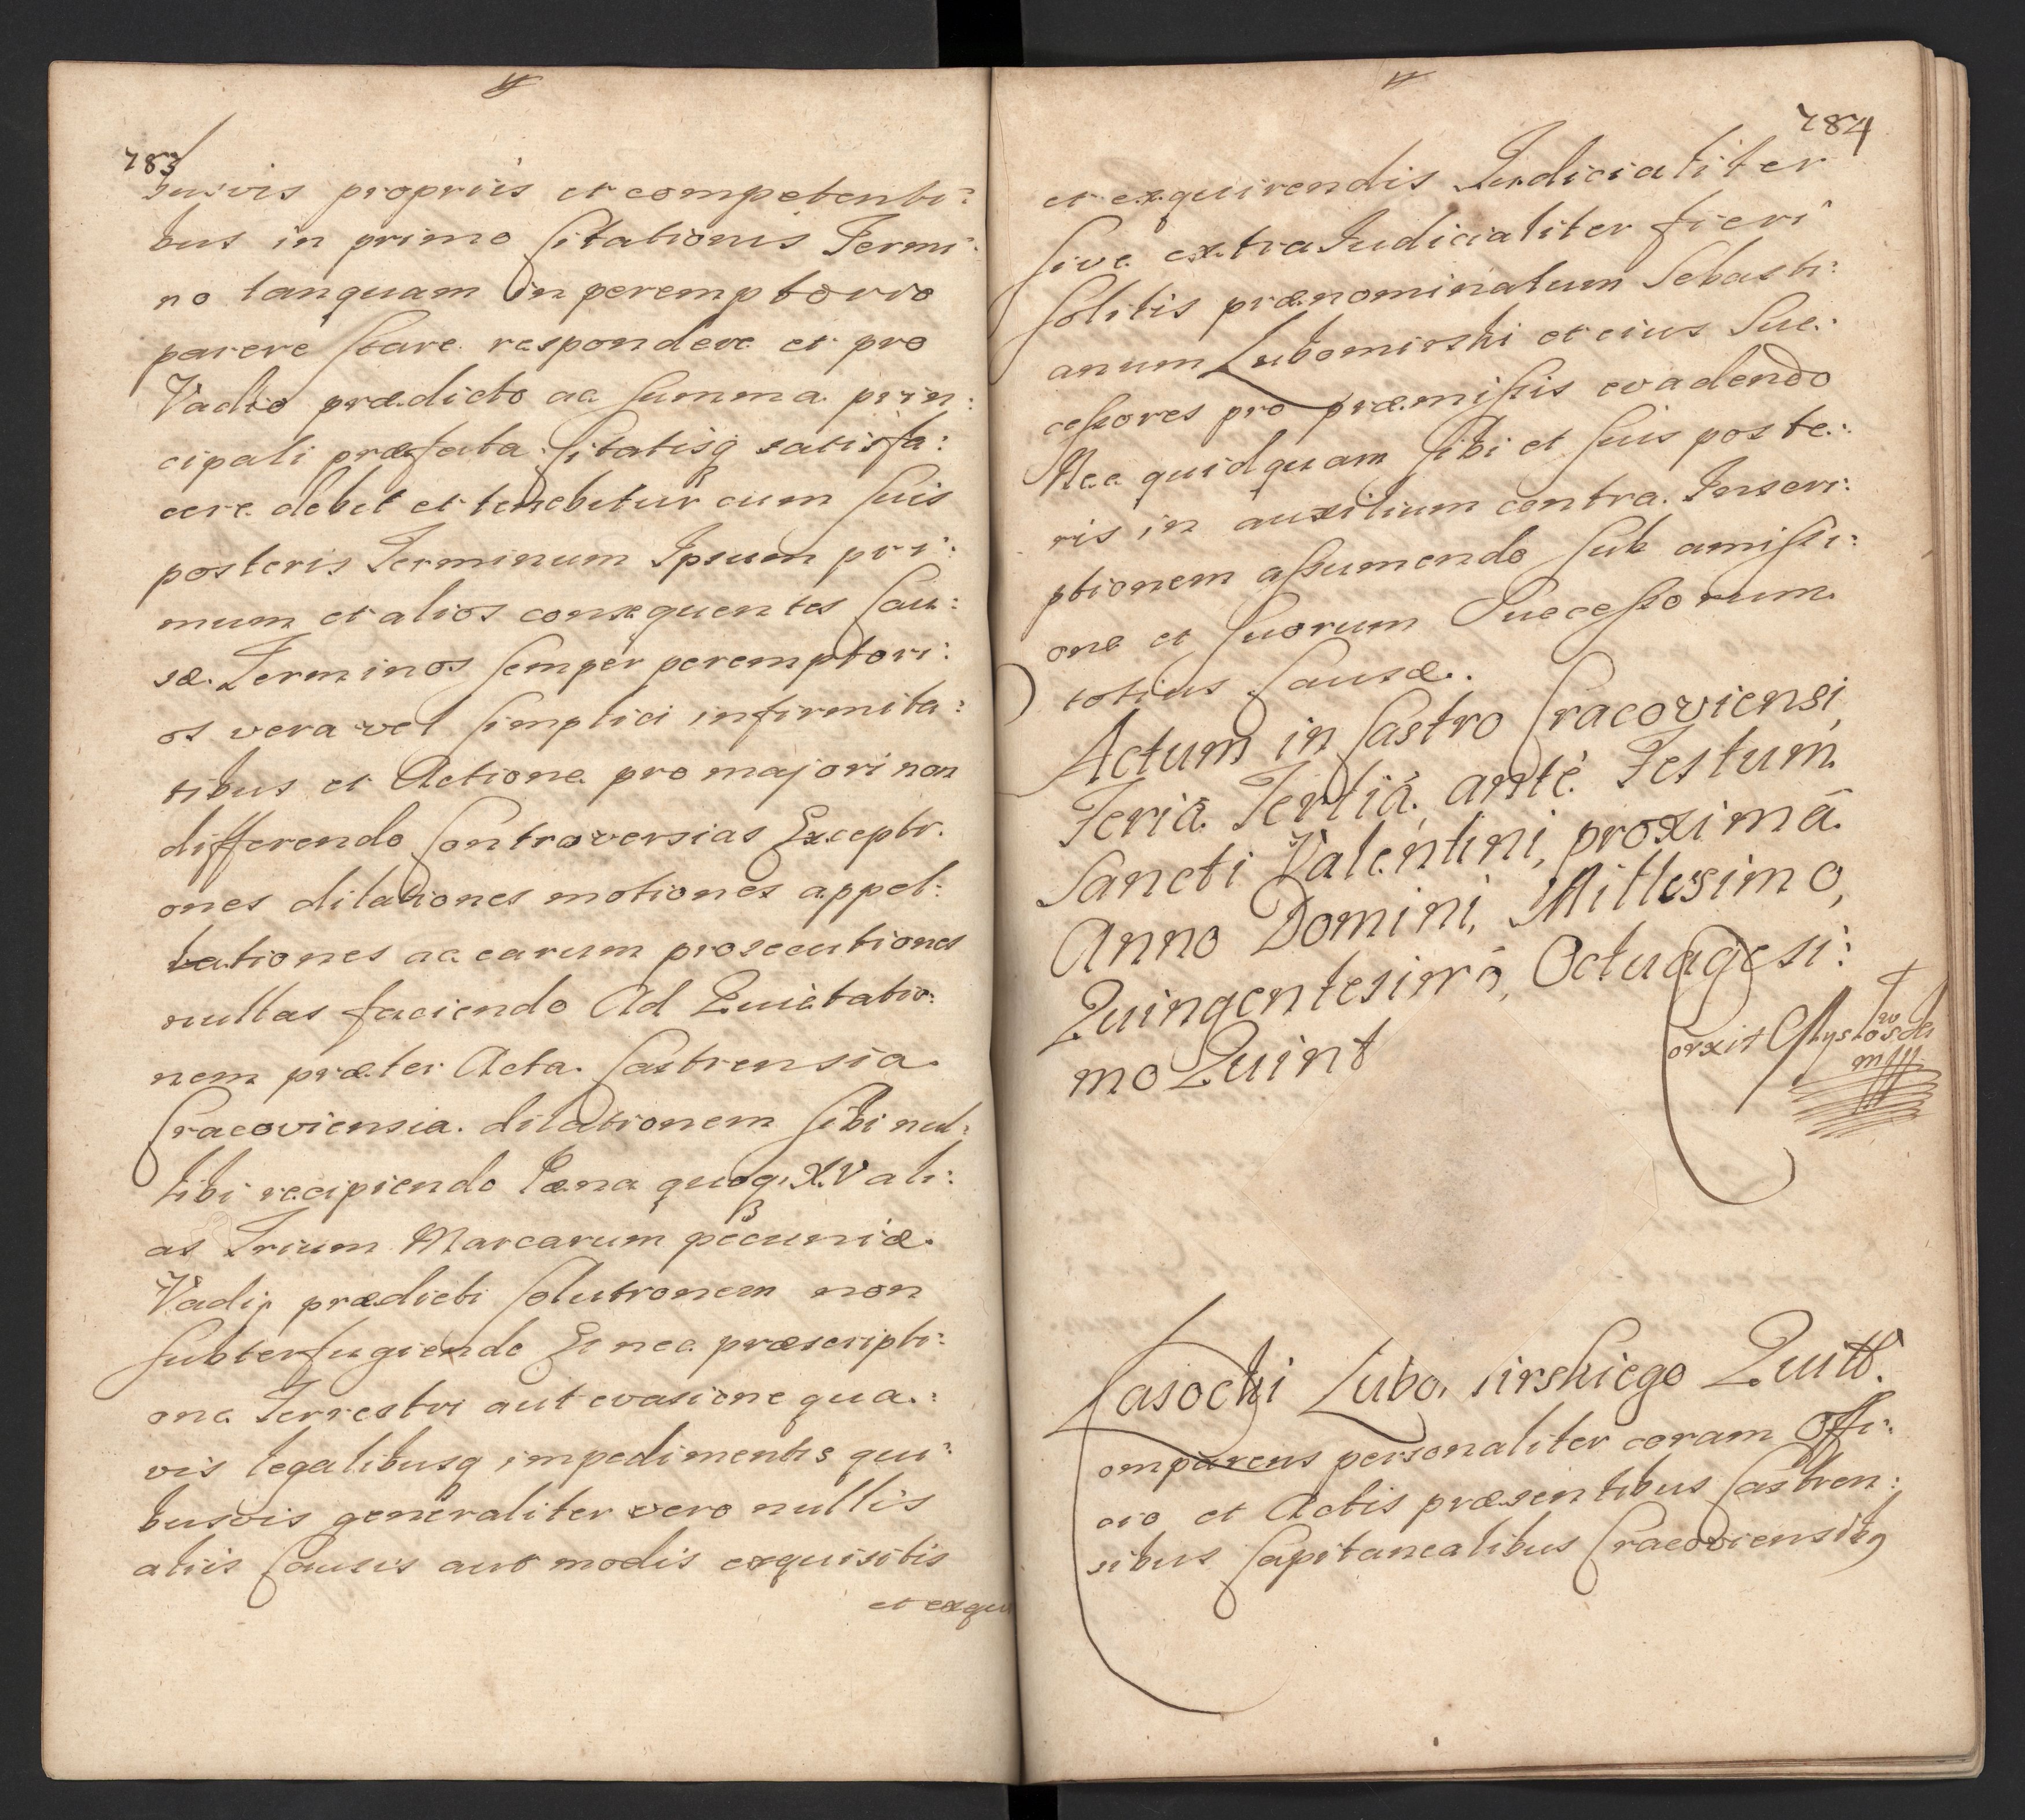 783
busvis propriis et competenti:
bus in primo Citationis Termi:
no tanquam in peremptorio
parere stare respondere et pro
Vadio prædicto ac summa prin:
cipali præfata Citatisq satisfa:
cere debet et tenebitur cum suis
posteris Terminum Ipsum pri:
mum et alios consequentes Cau:
sæ Terminos semper peremptori:
os vera vel simplici infirmita:
tibus et Actione pro majori non
differendo Controversias Excepti:
ones dilationes motiones appel:
lationes ac earum prosecutiones
nullas faciendo Ad Quietatio:
nem præter Acta Castrensia
Cracoviensia dilationem sibi nul:
libi recipiendo Pæna quoq XV ali:
as Trium Marcarum pecuniæ
Vadij prædicti solutionem non
subterfugiendo Et nec præscripti:
one Terrestri aut evasione qua:
vis legalibusq impedimentis qui:
busvis generaliter vero nullis
aliis Causis aut modis exquisitis
et exqui
784
et exquirendis Iudicialiter
sive extraIudicialiter fieri
solitis prænominatum Sebasti:
anum Lubomirski et eius Suc:
cessores pro præmissis evadendo
Nec quidquam sibi et suis poste:
ris in auxilium contra Inscri:
ptionem assumendo sub amissi:
one et suorum Successorum
totius Causæ.
Actum in Castro Cracoviensi,
Feriâ Tertiâ, antè Festum
Sancti Valentini, proximâ
Anno Domini, Millesimo,
Quingentesimô, Octuagesi:
mo Quint
Lasocki Lubo irskiego Quitt.
omparens personaliter coram Offi:
cio et Actis præsentibus Castren:
sibus Capitanealibus Cracoviensibq